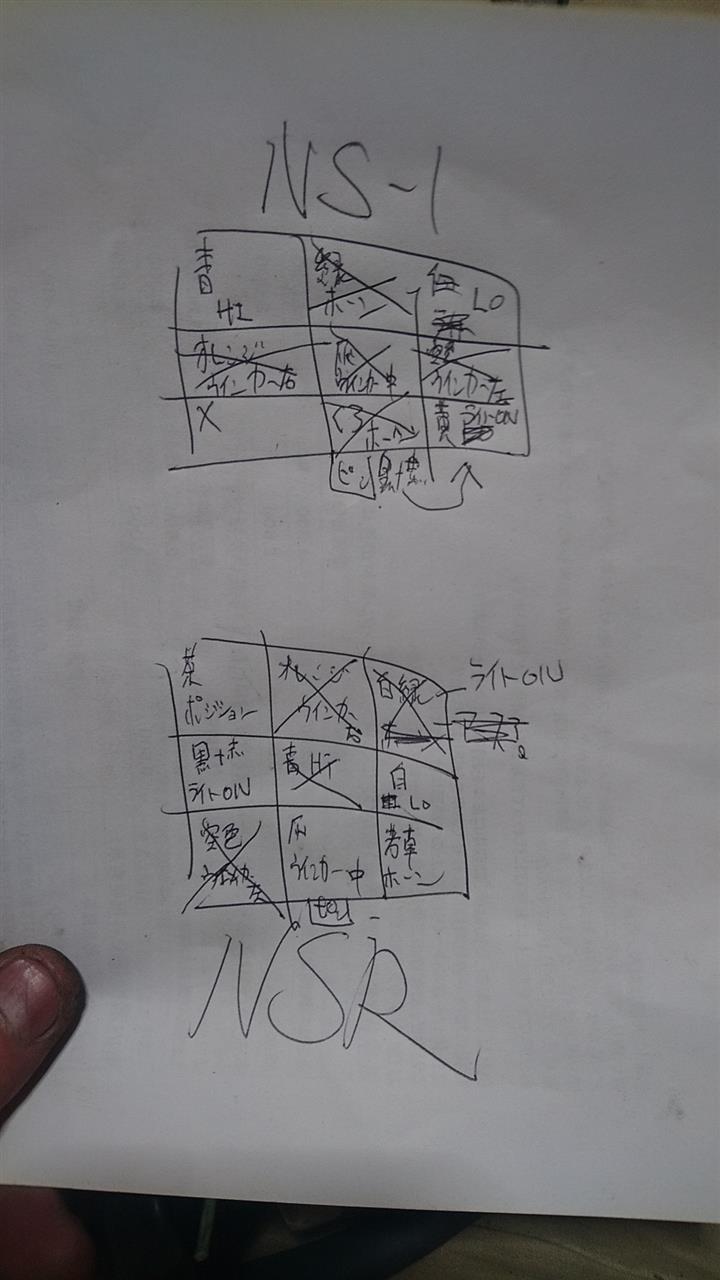 NS-1
青
HI
ホーン
白
LO
オレンジ
ウインカー右
灰
ウインカー中
ウインカー左
X
くろ
ホーン
黄 ライトON
ピン
NSR
茶
ポジション
オレンジ
ウインカー
右
白緑
ライトON
黒+赤
ライトON
青 HI
白
LO
空色
ウインカー
左
灰
ウインカー中
ホーン